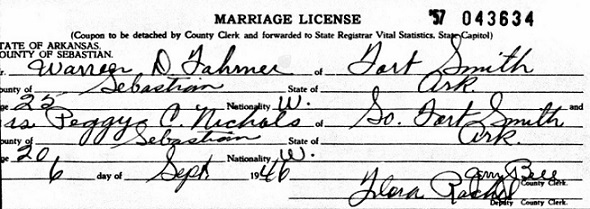 MARRIAGE LICENSE '57 043634
(Coupon to be detached by County Clerk and forwarded to State Registrar Vital Statistics, State Capitol)
TATE OF ARKANSAS,
OUNTY OF SEBASTIAN.
r. Warren D Fahrner of Fort Smith
ounty of Sebastian State of Ark.
ge 25 Nationality W. and
rs Peggy C. Nichols of So. Fort Smith
ounty of Sebastian State of Ark.
ge 20 Nationality W.
6 day of Sept 1946
Bell County Clerk.
Flora Deputy County Clerk.